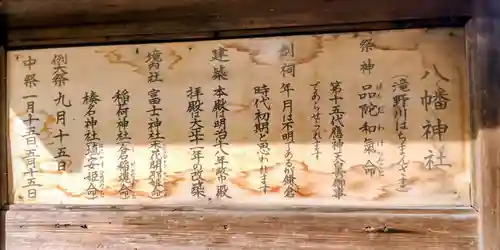 八幡神社
(滝野川はちまんさま)
祭神 品陀和氣命
ほんだわけのみこと
第十五代應神天皇の御事
であらせられます
創祠 年月は不明であるが鎌倉
時代初期と思われます
建築 本殿は明治十八年改殿
拝殿は大正十一年改築
境内社 富士神社
稲荷神社(倉稲魂命)
榛名神社(埴安姫命)
例大祭 九月十五日
中祭 一月十五日五月十五日